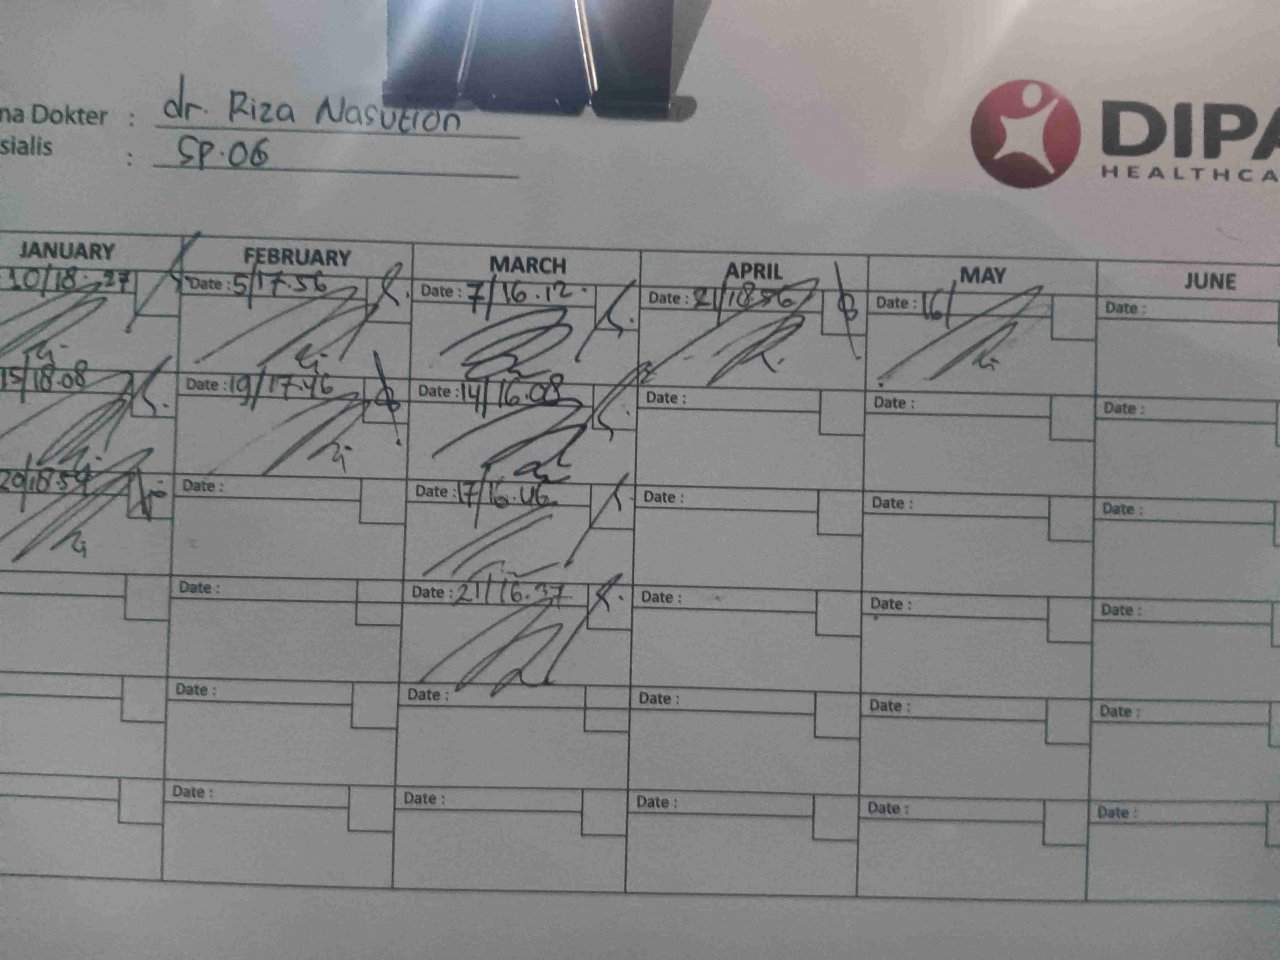 na Dokter : dr. Riza Nasution
sialis : SP.OG
DIPA
HEALTHCA
JANUARY FEBRUARY MARCH APRIL MAY JUNE
10/18.27 Date : 5/17.56 Date : 7/16.12 Date : 21/18.56 Date : 16/ Date :
15/18.08 Date : 19/17.46 Date : 14/16.08 Date : Date : Date :
20/18.59 Date : Date : 17/16.46 Date : Date : Date :
Date : Date : 21/16.37 Date : Date : Date :
Date : Date : Date : Date : Date :
Date : Date : Date : Date : Date :